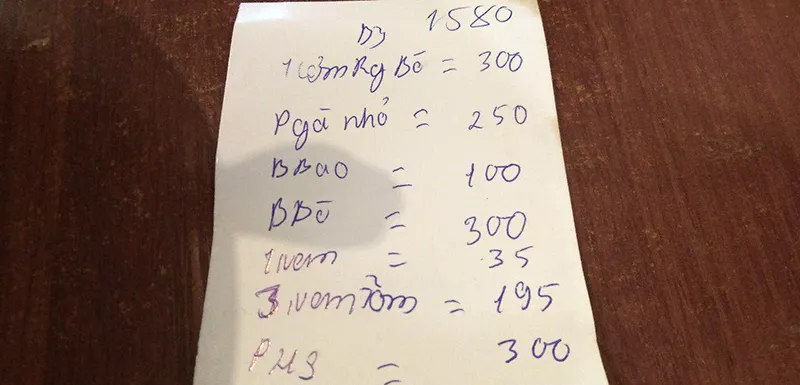 B3 1580
1 cơm Rg Bò = 300
P gà nhỏ = 250
BBao = 100
BBò = 300
1 nem = 35
3 nem = 195
= 300